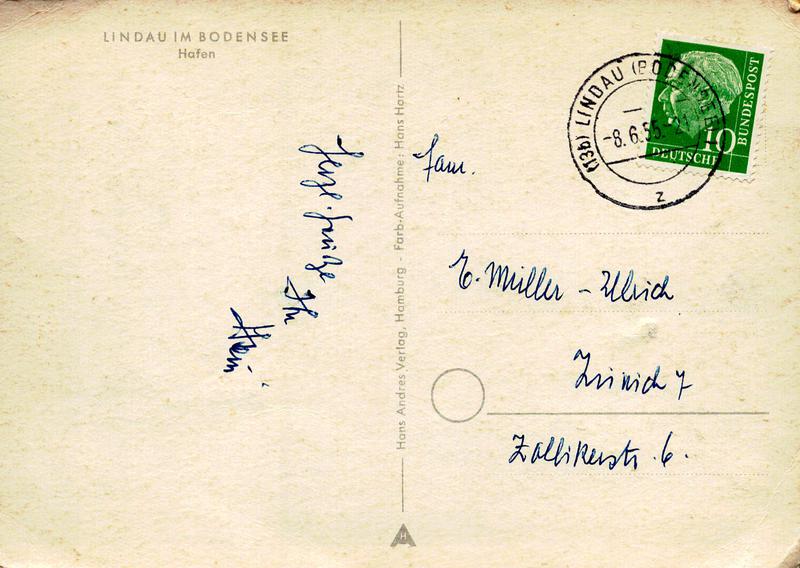 LINDAU IM BODENSEE
Hafen
Herzl. Grüße
Ihr
Hans Andres Verlag, Hamburg - Farb-Aufnahme: Hans Hartz
H
(13b) LINDAU (BODENSEE)
-8.6.55.-21
z
10
DEUTSCHE
BUNDESPOST
Fam.
E. Müller - Ulrich
Zürich 7
Zollikerstr. 6.